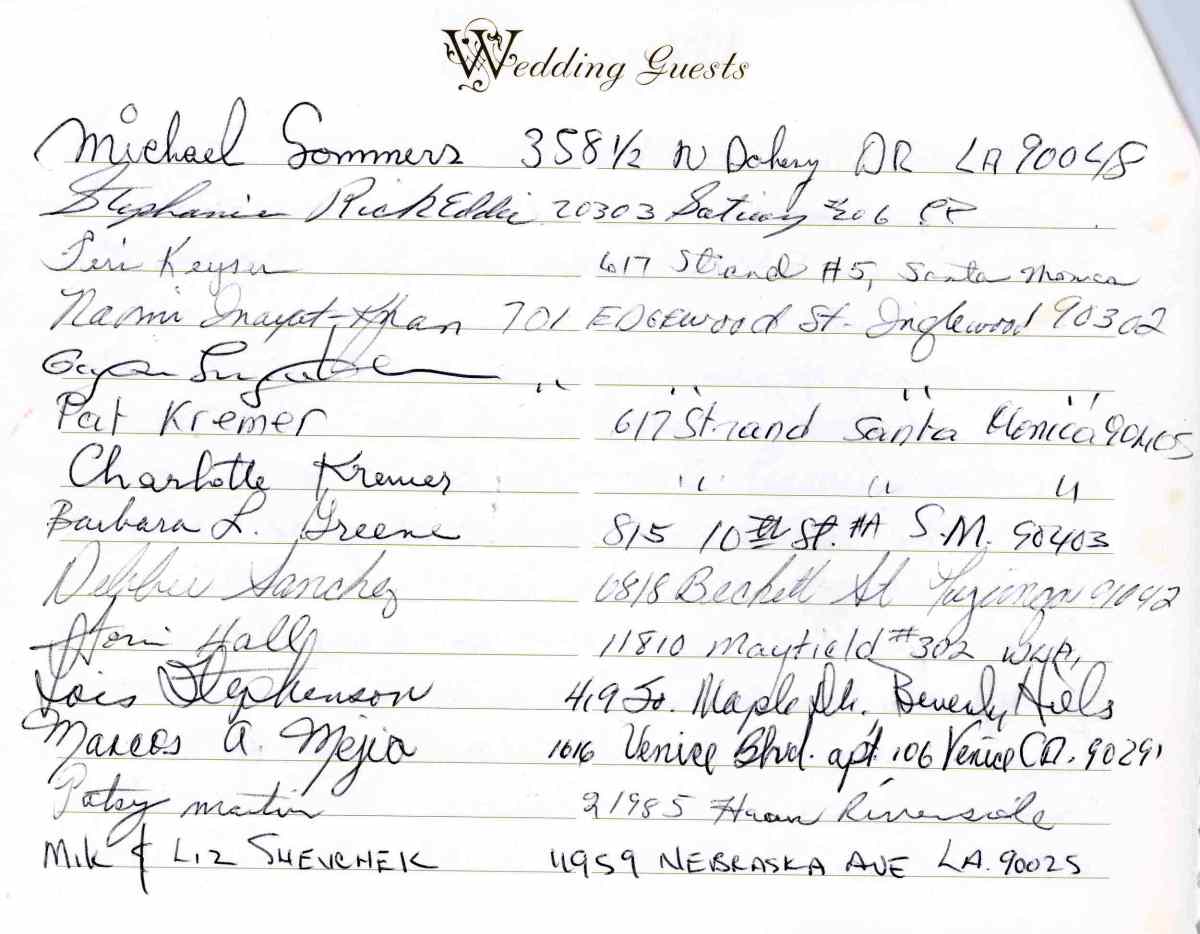 Wedding Guests
Michael Sommers 358 1/2 N Doheny DR LA 90048
Stephanie RickEddie 20303 Saticoy #206
Teri Keyser 617 Strand #5, Santa Monica
Naomi Inayat-Khan 701 EDGEWOOD St. Inglewood 90302
" " " "
Pat Kremer 617 Strand Santa Monica 90405
Charlotte Kremer " " "
Barbara L. Greene 815 10th St. #A S.M. 90403
Debbie Sanchez Beckett St Tujunga 91042
Hall 11810 Mayfield #302
Lois Stephenson 419 So. Maple Dr. Beverly Hills
Marcos A. Mejia 1616 Venice Blvd. apt 106 Venice CA. 90291
Patsy Martin 21985 Riverside
MIK & LIZ SHEVCHEK 11959 NEBRASKA AVE LA. 90025